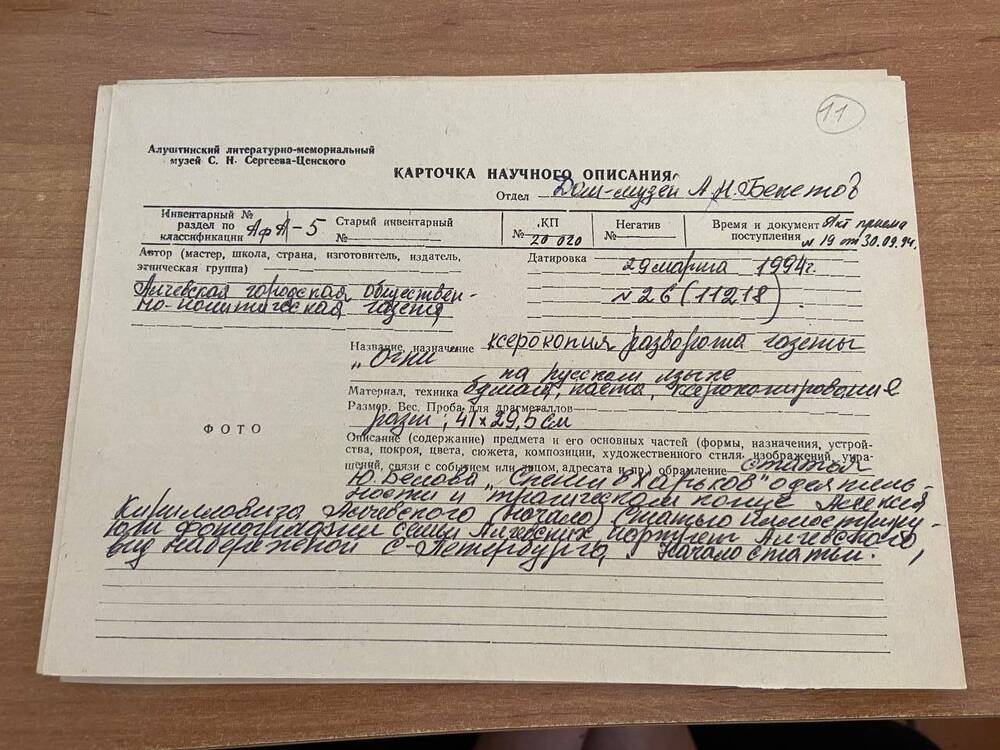 11
Алуштинский литературно-мемориальный
музей С. Н. Сергеева-Ценского
КАРТОЧКА НАУЧНОГО ОПИСАНИЯ
Отдел Дом-музей А.Н.Бекетов
Инвентарный №
раздел по
классификации АфА-5
Старый инвентарный
№
КП
№ 20 020
Негатив
№
Время и документ Акт приема
поступления № 19 от 30.09.94.
Автор (мастер, школа, страна, изготовитель, издатель,
этническая группа)
Алчевская городская обществен-
но-политическая газета
Датировка
29 марта 1994г.
№ 26 (11218)
Название, назначение ксерокопия разворота газеты
„Огни"
на русском языке
Материал, техника бумага, паста, ксерокопирование
Размер. Вес. Проба для драгметаллов
разм; 41х29,5 см
ФОТО
Описание (содержание) предмета и его основных частей (формы, назначения, устрой-
ства, покроя, цвета, сюжета, композиции, художественного стиля, изображений, укра-
шений, связи с событием или лицом, адресата и пр.) обрамление статья
Ю. Белова „Спешил в Харьков" о деятель-
ности и трагическом конце Алексея
Кирилловича Алчевского (начало) Статью иллюстриру-
ют фотографии семьи Алчевских портрет Алчевского,
вид набережной С-Петербурга. Начало статьи.